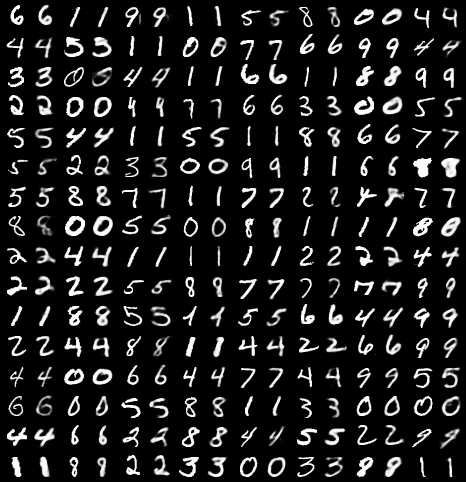 6 6 1 1 9 9 1 1 5 5 8 8 0 0 4 4
4 4 5 5 1 1 0 0 7 7 6 6 9 9 4 4
3 3 0 0 4 4 1 1 6 6 1 1 8 8 9 9
2 2 0 0 4 4 7 7 6 6 3 3 0 0 5 5
5 5 4 4 1 1 5 5 1 1 8 8 6 6 7 7
5 5 2 2 3 3 0 0 9 9 1 1 6 6
5 5 8 8 7 7 1 1 7 7 2 2 4 4 7 7
8 8 0 0 5 5 0 0 8 8 1 1 1 1
2 2 4 4 1 1 1 1 1 1 2 2 2 2 4 4
2 2 2 2 5 5 8 8 7 7 7 7 7 7 9 9
1 1 8 8 5 5 1 1 5 5 6 6 4 4 9 9
2 2 4 4 8 8 1 1 4 4 2 2 6 6 9 9
4 4 0 0 6 6 4 4 7 7 4 4 9 9 5 5
6 6 0 0 5 5 8 8 1 1 3 3 0 0 0 0
4 4 6 6 2 2 8 8 4 4 5 5 2 2 9 9
1 1 8 8 2 2 3 3 0 0 3 3 8 8 1 1